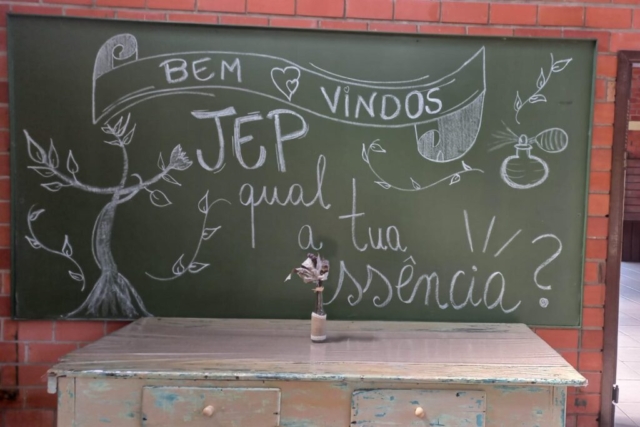 BEM VINDOS
JEP
qual
a tua
essência?